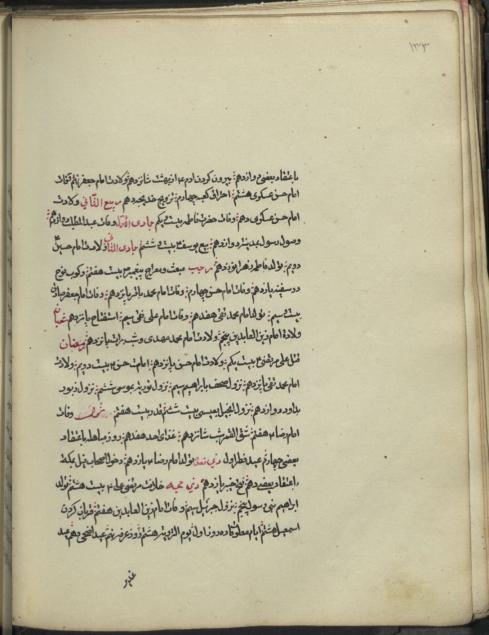 ۱۳۳
باعتقاد بعضی دوازدهم بیرون کردن ادم ع از بهشت شانزدهم ولادت امام جعفر نهم وفات
امام حسن عسکری هشتم احراق کعبه چهارم تزویج خدیجه دهم ربیع الثانی ولادت
امام حسن عسکری دهم وفات حضرت فاطمه بیست یکم جمادی الاول وفات عبدالملک یازدهم
وصول رسول بمدینه دوازدهم بیع یوسف بیست ششم جمادی الثانی ولادت امام حسین
دویم تولد فاطمه زهرا نوزدهم رجب مبعث ومعراج پیغمبر بیست هفتم رکوب نوح
در سفینه یازدهم وفات امام حسن چهارم وفات امام محمد باقر پانزدهم وفات امام جعفر صادق
بیست سیم تولد امام محمد تقی هفدهم وفات امام علی نقی سیم استفتاح پانزدهم شعبان
ولادة امام زین العابدین پنجم ولادت امام محمد مهدی وشب برات پانزدهم رمضان
قتل علی مرتضی ع بیست یکم ولادت امام حسن پانزدهم امامت حسن بیست دویم ولادت
امام محمد تقی پانزدهم نزول صحف بابراهیم سیم نزول توریة بموسی ششم نزول زبور
بداود دوازدهم نزول انجیل بعیسی بیست ششم قدر بیست هفتم شوال وفات
امام رضا ع هفتم شق القمر شب شانزدهم غزای احد هفدهم روز مباهله باعتقاد
بعضی چهارم عید فطر اول ذی قعده تولد امام رضا ع یازدهم دخول اصحاب فیل بمکه
باعتقاد بعضی دهم فتح خیبر پانزدهم ذی حجه خلافت مرتضی علی ع بیست هشتم تولد
ابراهیم نبی رسول پنجم نزول جبرئیل نهم وفات امام زین العابدین هفتم قربان کردن
اسمعیل هشتم ایام معلومات ده روز اول یوم الترویه هشتم روز عرفه نهم عید اضحی دهم عید
غدیر